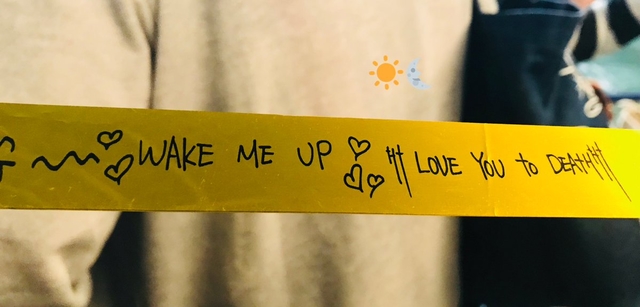 WAKE ME UP LOVE YOU to DEATH